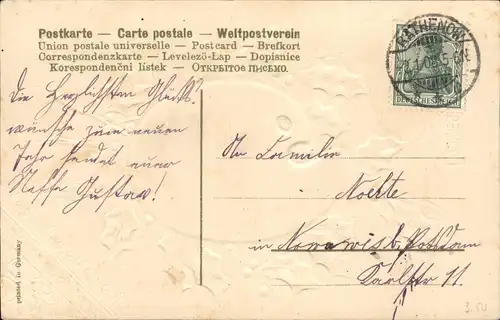 Postkarte — Carte postale — Weltpostverein
Union postale universelle — Postcard — Brefkort
Correspondenzkarte — Levelező-Lap — Dopisnice
Korespondenční lístek — Открытое письмо.
Die herzlichsten Glück-
wünsche zum neuen
Jahr sendet euer
Neffe Gustav!
RATHENOW
DEUTSCHES REICH
An Familie
Noelte
in Nowawes b. Potsdam
Karlstr 11.
printed in Germany
3.50